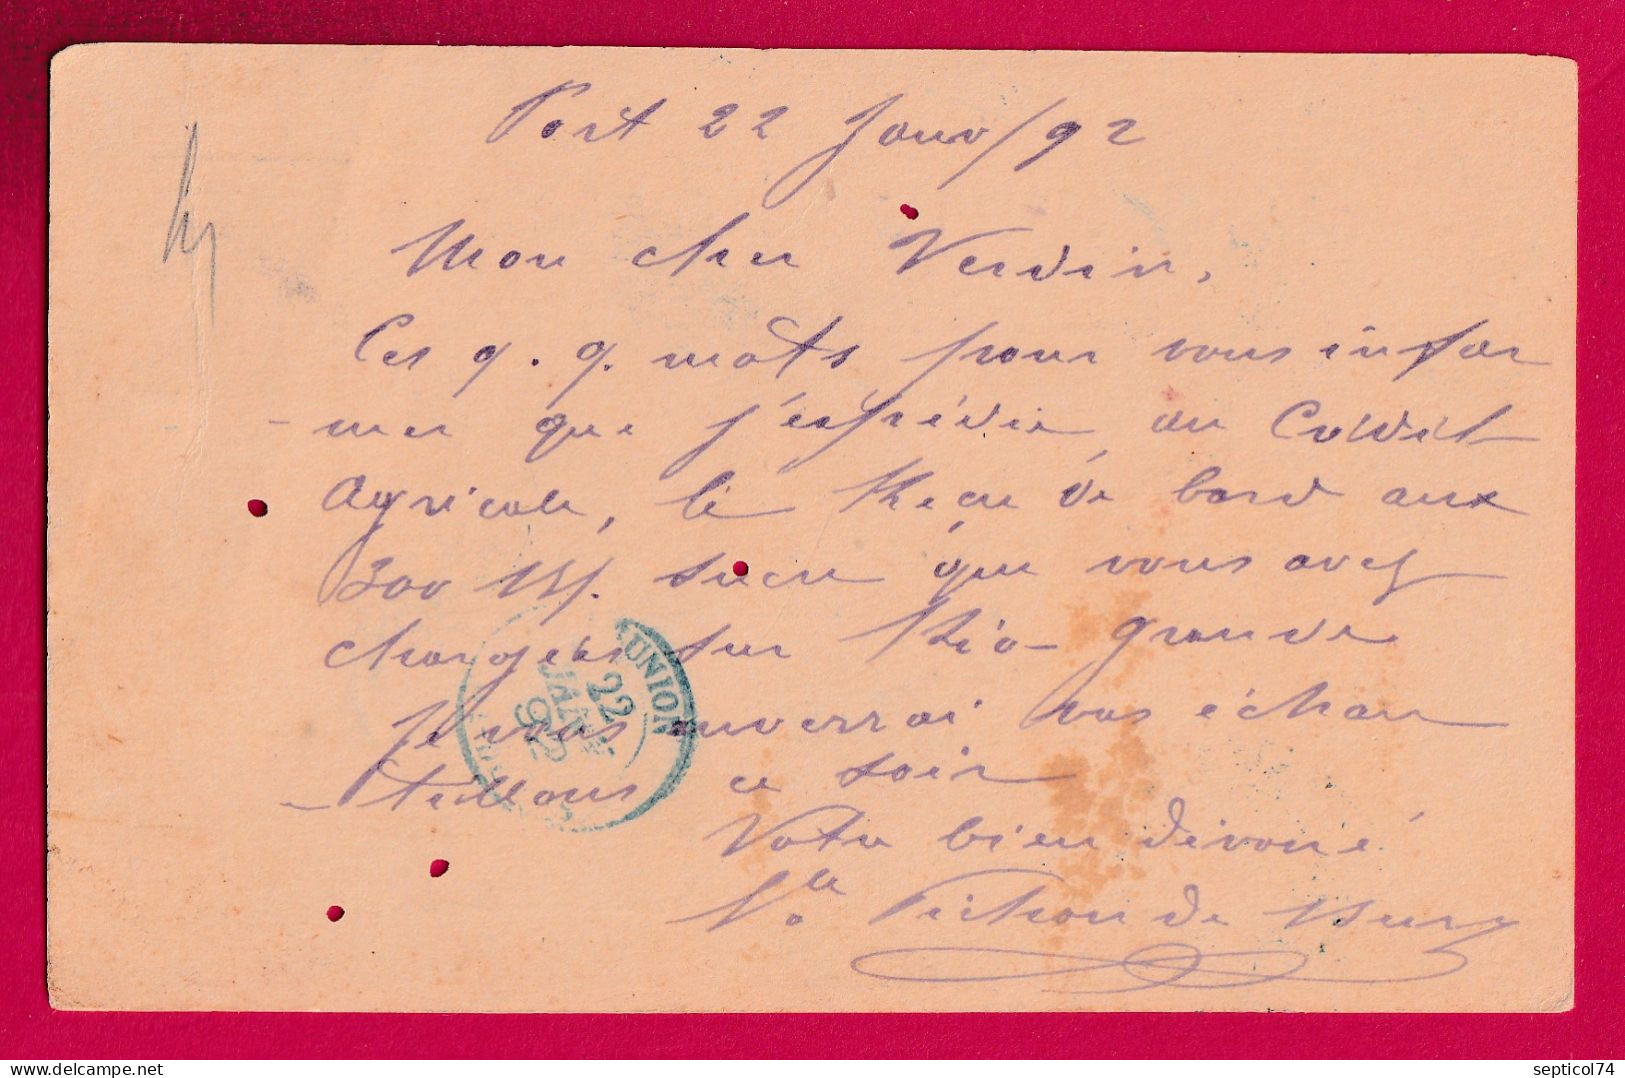 Port 22 Janv/92
Mon cher Verdin,
Ces q.q. mots pour vous infor
-mer que j'expédie au Crédit
Agricole, le Recu de bord aux
300 Bs/. sucre que vous avez
chargés sur Rio-grande
Je vous enverrai vos échan
-tillons ce soir
Votre bien dévoué
Pichon de Bury
REUNION
22
JANV
92
septicol74